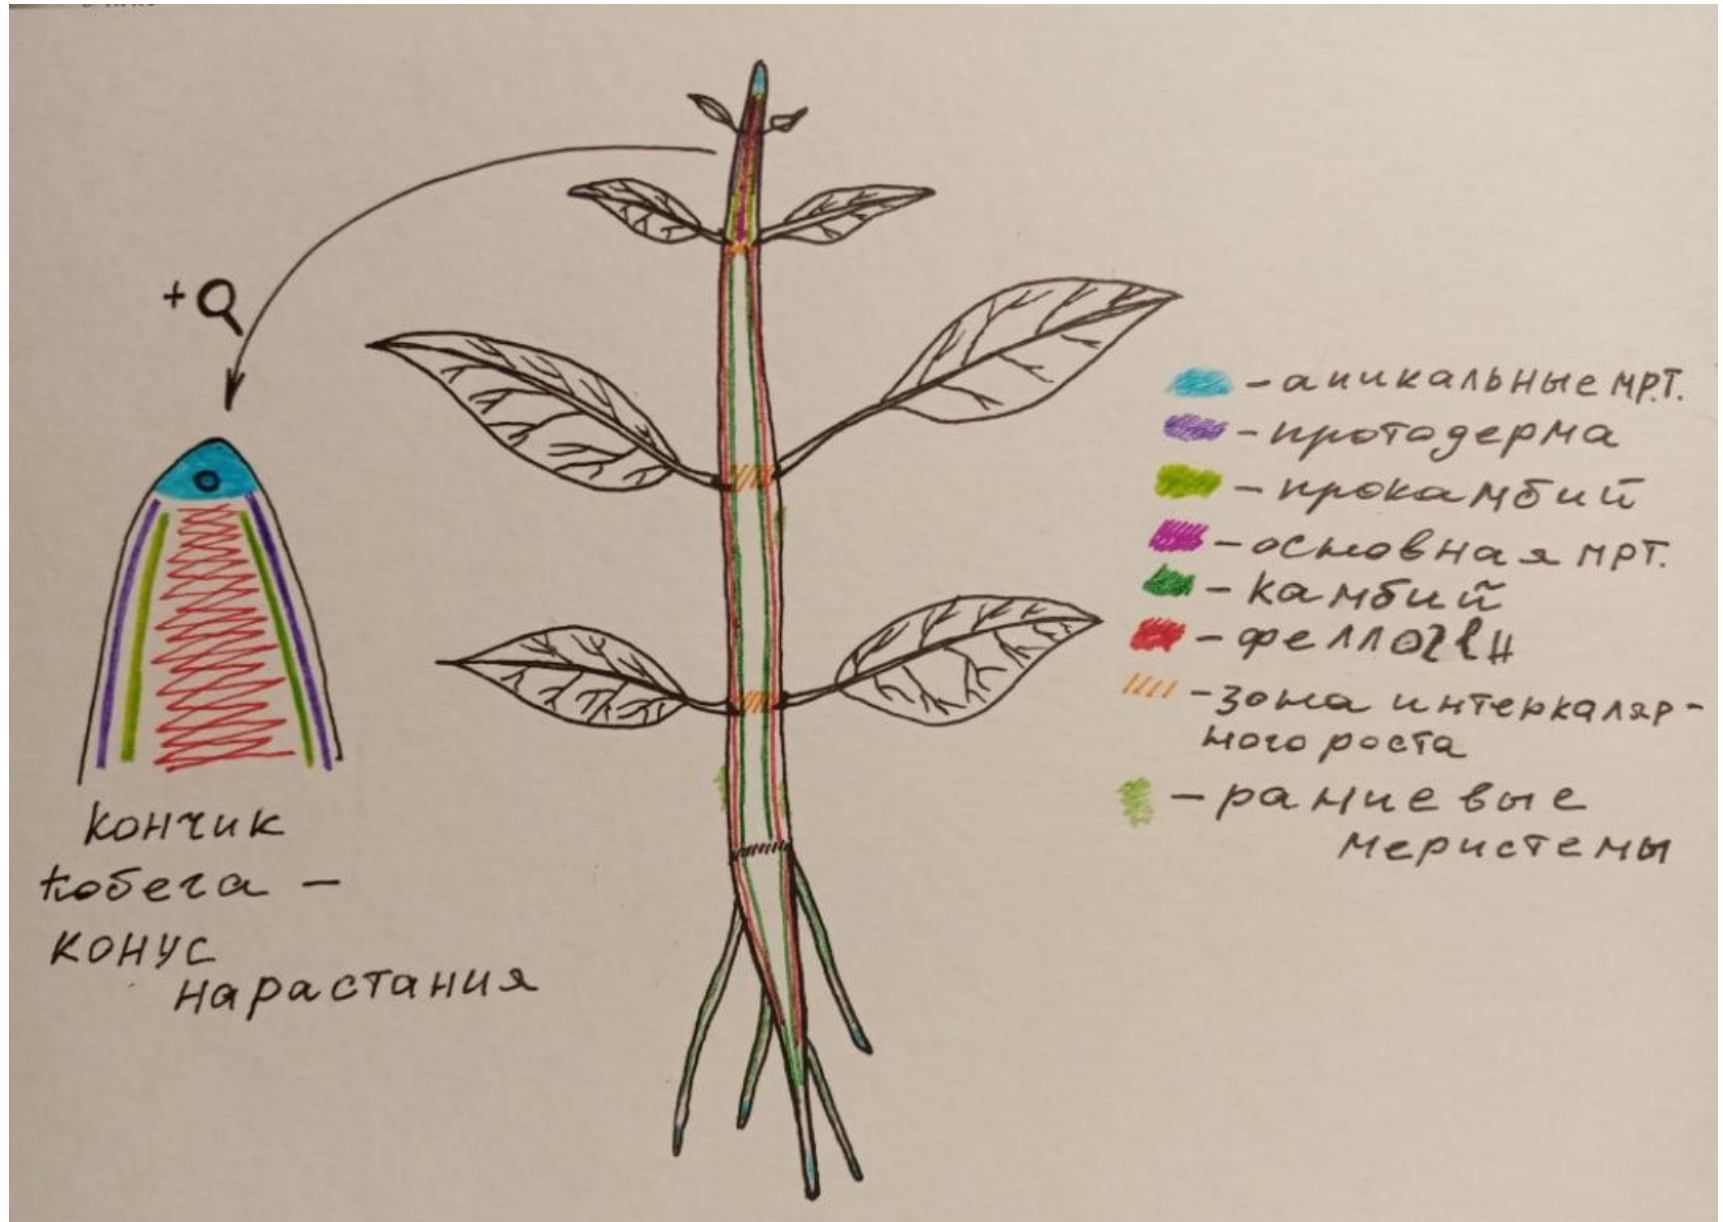 +
кончик
побега –
конус
нарастания
– апикальные мрт.
– протодерма
– прокамбий
– основная мрт.
– камбий
– феллоген
– зона интеркаляр-
ного роста
– раниевые
меристемы